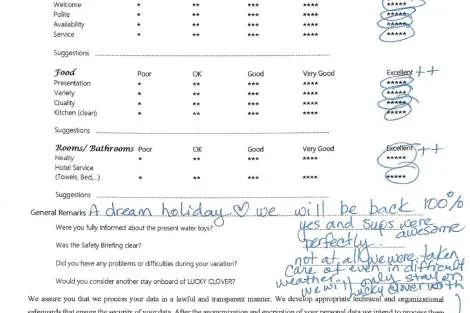 Welcome * ** *** **** *****
Polite * ** *** **** *****
Availability * ** *** **** *****
Service * ** *** **** *****
Suggestions
Food Poor OK Good Very Good Excellent ++
Presentation * ** *** **** *****
Variety * ** *** **** *****
Quality * ** *** **** *****
Kitchen (clean) * ** *** **** *****
Suggestions
Rooms/ Bathrooms Poor OK Good Very Good Excellent ++
Neatly * ** *** **** *****
Hotel Service
(Towels, Bed,...) * ** *** **** *****
Suggestions
General Remarks A dream holiday ♡ we will be back 100%
Were you fully informed about the present water toys? yes and sups were awesome
Was the Safety Briefing clear? perfectly.
Did you have any problems or difficulties during your vacation? not at all we were taken
care of even in difficult
weather.
Would you consider another stay onboard of LUCKY CLOVER? we will only stay on
Lucky clover
We assure you that we process your data in a lawful and transparent manner. We develop appropriate technical and organizational
safeguards that ensure the security of your data. After the anonymization and encryption of your personal data we intend to process them